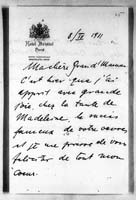 8/IV 1911
Ma chère Grand'Maman
C'est hier que j'ai
appris avec grande
joie chez la tante de
Madeleine, le succès
fameux de votre
et je me presse de vous
féliciter de tout mon
coeur.